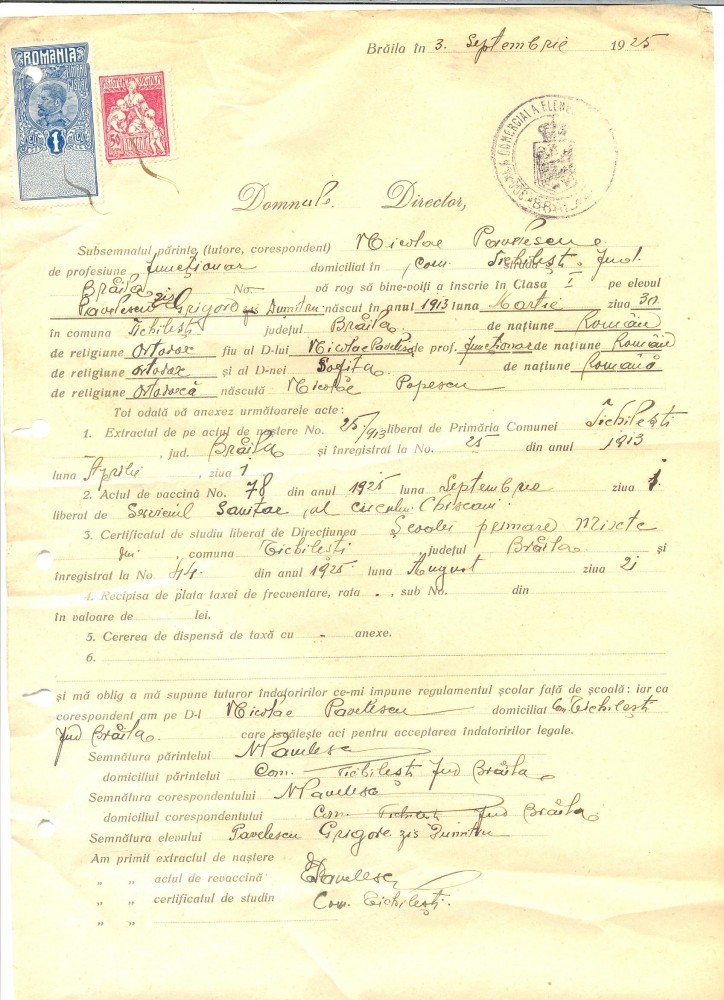 ROMANIA
TIMBRU FISCAL
1
50
ROMANIA
Brăila în 3. Septembrie 1925
ȘCOALA COMERCIALA ELEM
BRĂILA
Domnule Director,
Subsemnatul părinte, (tutore, corespondent) Nicolae Pavelescu
de profesiune funcționar domiciliat în com. Tichilești Jud.
Brăila No — vă rog să bine-voiți a înscrie în Clasa I pe elevul
Pavelescu Grigore zis Dumitru născut în anul 1913 luna Martie ziua 30
în comuna Tichilești județul Brăila de națiune Român
de religiune Ortodox fiu al D-lui Nicolae Pavelescu de prof. funcționar de națiune Român
de religiune ortodox și al D-nei Sofița de națiune Română
de religiune Ortodoxă născută Nicolae Popescu
Tot odată vă anexez următoarele acte:
1. Extractul de pe actul de naștere No. 25/913 liberat de Primăria Comunei Tichilești
, jud. Brăila și înregistrat la No. 25 din anul 1913
luna Aprilie , ziua 1
2. Actul de vaccină No. 78 din anul 1925 luna Septembrie ziua 1
liberat de Serviciul Sanitar al circului Chiscani
3. Certificatul de studiu liberat de Direcțiunea Școalei primare Mixte
din , comuna Tichilești , județul Brăila și
înregistrat la No 44 din anul 1925 luna August ziua 21
4. Recipisa de plata taxei de frecventare, rata - , sub No. din
în valoare de lei.
5. Cererea de dispensă de taxă cu - anexe.
6.
și mă oblig a mă supune tuturor îndatoririlor ce-mi impune regulamentul școlar față de școală: iar ca
corespondent am pe D-l Nicolae Pavelescu domiciliat Com Tichilești
Jud Brăila. care iscălește aci pentru acceptarea îndatoririlor legale.
Semnătura părintelui NPavelescu
domiciliul părintelui Com. Tichilești Jud Brăila
Semnătura corespondentului NPavelescu
domiciliul corespondentului Com. Tichilești Jud Brăila
Semnătura elevului Pavelescu Grigore zis Dumitru
Am primit extractul de naștere
„ „ actul de revaccină Pavelescu
„ „ certificatul de studin Com. Tichilești.
„ „